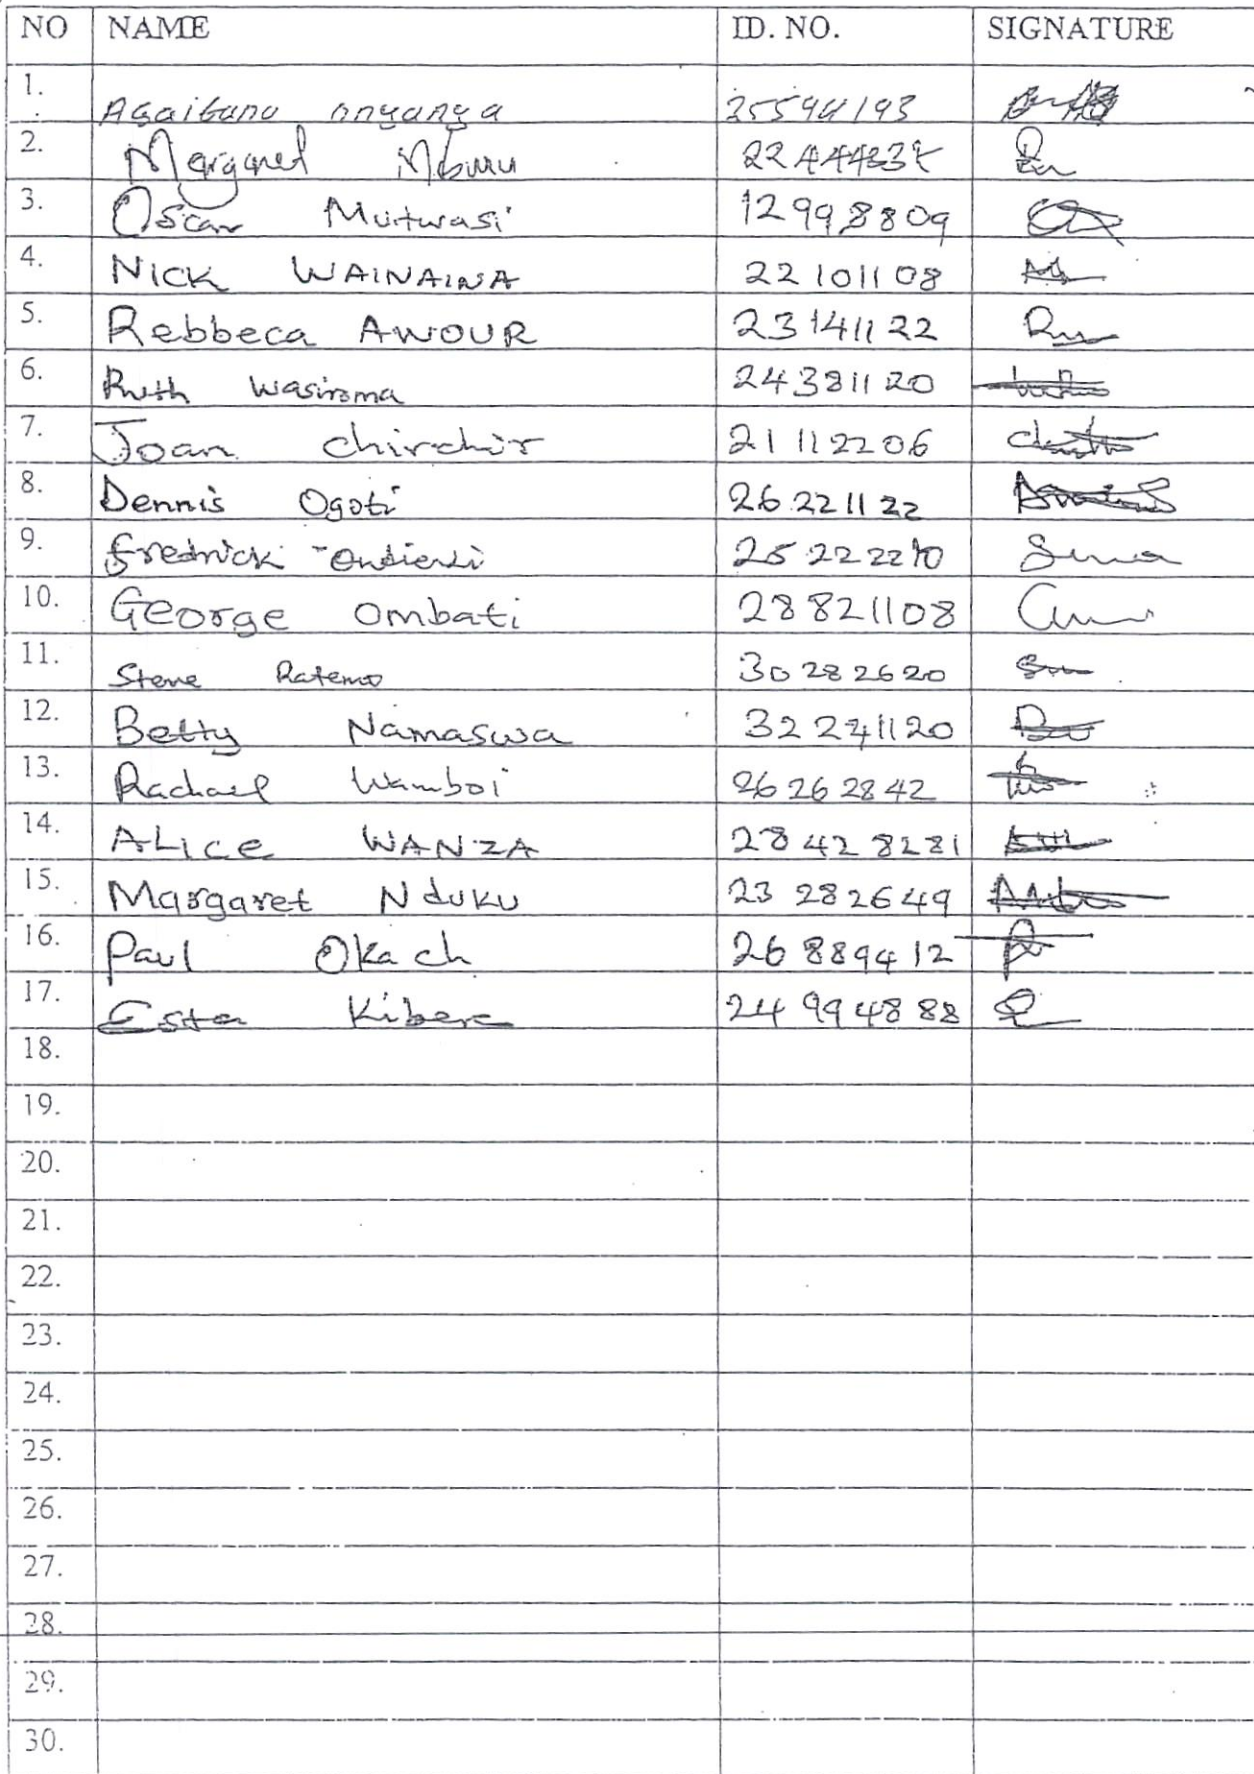 NO NAME ID. NO. SIGNATURE
1. Agaitano onyanga 25594193
2. Margaret Mburu
3. Oscar Mutwasi 12998809
4. NICK WAINAINA 22101108
5. Rebbeca AWOUR 23141122
6. Ruth Wasiroma 24381120
7. Joan Chirchir 21112206
8. Dennis Ogoti 26221122
9. Fredrick Ondieki
10. George Ombati 28821108
11. Steve Ratemo 30282620
12. Betty Namaswa 32241120
13. Rachael Wamboi 26262842
14. ALICE WANZA 28428281
15. Margaret Nduku 23282649
16. Paul Okach 26889412
17. Esta Kibere 24994888
18.
19.
20.
21.
22.
23.
24.
25.
26.
27.
28.
29.
30.